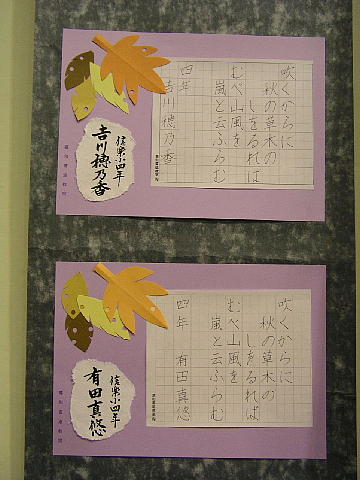 吹くからに
秋の草木の
しをるれば
むべ山風を
嵐と云ふらむ
四年
吉川穂乃香
信楽小四年
吉川穂乃香
吹くからに
秋の草木の
しをるれば
むべ山風を
嵐と云ふらむ
四年 有田真悠
信楽小四年
有田真悠